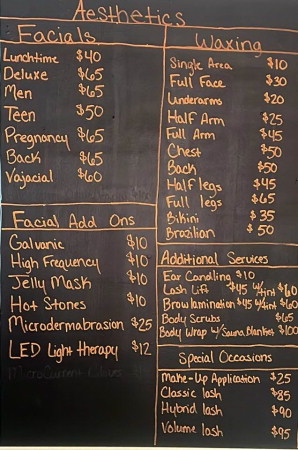 Aesthetics
Facials
Lunchtime $40
Deluxe $65
Men $65
Teen $50
Pregnancy $65
Back $65
Vajacial $60
Facial Add Ons
Galvanic $10
High Frequency $10
Jelly Mask $10
Hot Stones $10
Microdermabrasion $25
LED Light therapy $12
Waxing
Single Area $10
Full Face $30
Underarms $20
Half Arm $25
Full Arm $45
Chest $50
Back $50
Half legs $45
Full legs $65
Bikini $35
Brazilian $50
Additional Services
Ear Candling $10
Lash Lift $45 w/tint $60
Brow lamination $45 w/tint $60
Body Scrubs $65
Body Wrap w/ Sauna Blanket $100
Special Occasions
Make-Up Application $25
Classic lash $85
Hybrid lash $90
Volume lash $95